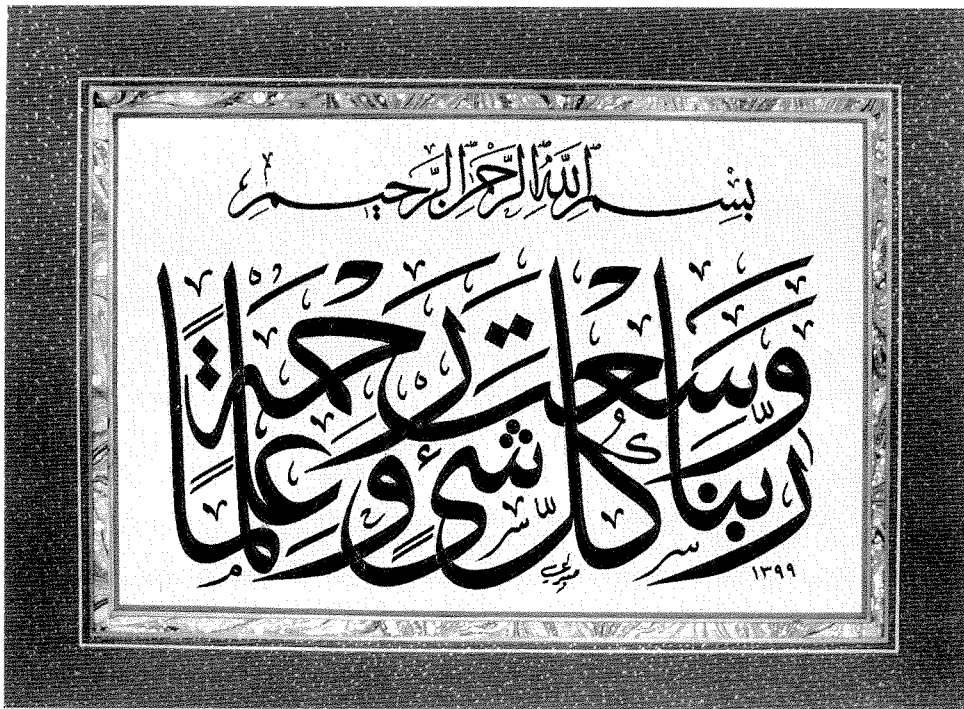 بِسْمِ اللَّهِ الرَّحْمٰنِ الرَّحِيمِ
رَبَّنَا وَسِعْتَ كُلَّ شَيْءٍ رَحْمَةً وَعِلْمًا
١٣٩٩